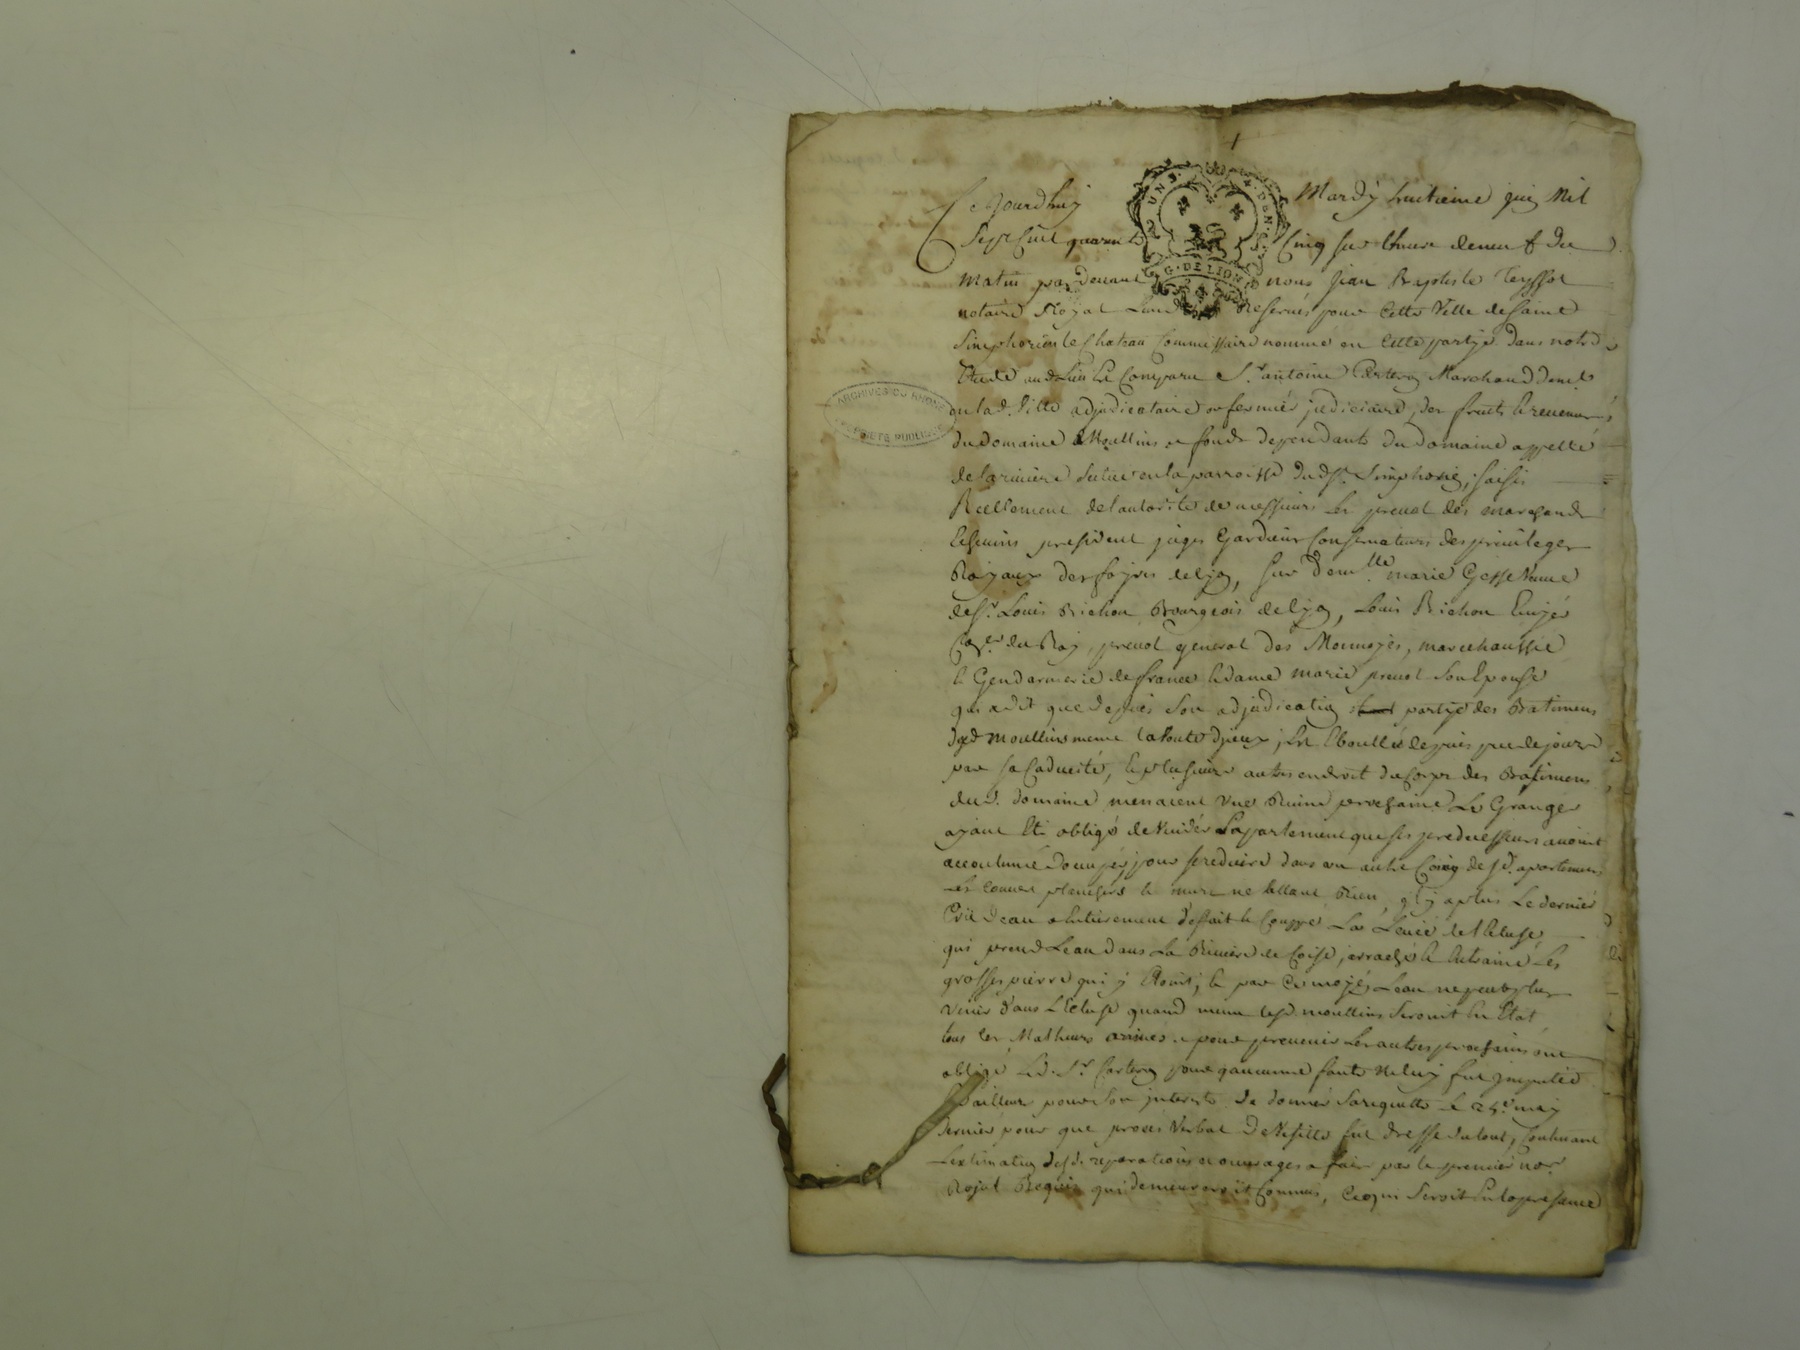 Ce Jourdhuy Mardy huitieme juin Mil
Sept Cent quarante Cinq sur lheure de neuf du
G. DE LION
Matin par devant nous Jean Baptiste Teyssot
notaire Royal Reservé pour Cette Ville de Saint
Simphorien le Chateau Commissaire nommé en Cette partye dans notre
Etude aud. Lieu Est Comparu Sr. antoine Marchand demt.
en lad. Ville adjudicataire ou fermier judiciaire des fruits & revenus
ARCHIVES DU RHONE
DEPOTS PUBLICS
du domaine Moullins & fonds dependants du domaine appellé
de la riviere scitué en la parroisse dud. St. Simphorien, saisis
Reellement de lautorité de messieurs Les prevot des marchands
Echevins president juges Gardiens Conservateurs des privileges
Royaux des foyres de Lyon, sur demlle. marie Gesse Veuve
de Sr. Louis Richon Bourgeois de Lyon, Louis Richon Ecuyer
du Roy, prevot general des Monnoyes, marechaussée
& Gendarmerie de france & dame marie prevot son Epouse
qui a dit que depuis son adjudication partye des Batimens
desd. Moullins meme la Route Est Eboullée depuis peu de jours
par sa Caducité, & plusieurs autres endroit du Corps des Batimens
dud. domaine menacent Une Ruine prochaine Le Granger
ayant Eté obligé de Vuider Lapartement que ses predecesseurs avoient
accoutumé doccuper pour se reduire dans un autre Coing desd. apartemens
Les planchers & murs ne Vallant Rien, quil y a plus Le dernier
Crüe deau a Entierement deffait & Couppé La Levée de lEcluse
qui prend Leau dans La Riviere de Coise, arraché & Entrainé Les
grosses pierre qui y Etoient, & par Ce moyen Leau ne peut plus
Venir dans LEcluse quand meme lesd. moullins seroient En Etat
tous Ces Malheurs arrivés & pour prevenir Les autres prochains ont
obligé Led. Sr. pour quaucune faute ne luy fut Imputée
& dailleurs pour son interets de donner sa requette le 25e. may
dernier pour que procés Verbal de Visitte fut dressé du tout, Contenant
Lestimation desd. reparations & ouvrages a faire par le premier nore.
Royal Requis qui demeureroit Commis, Ce qui seroit En la presence